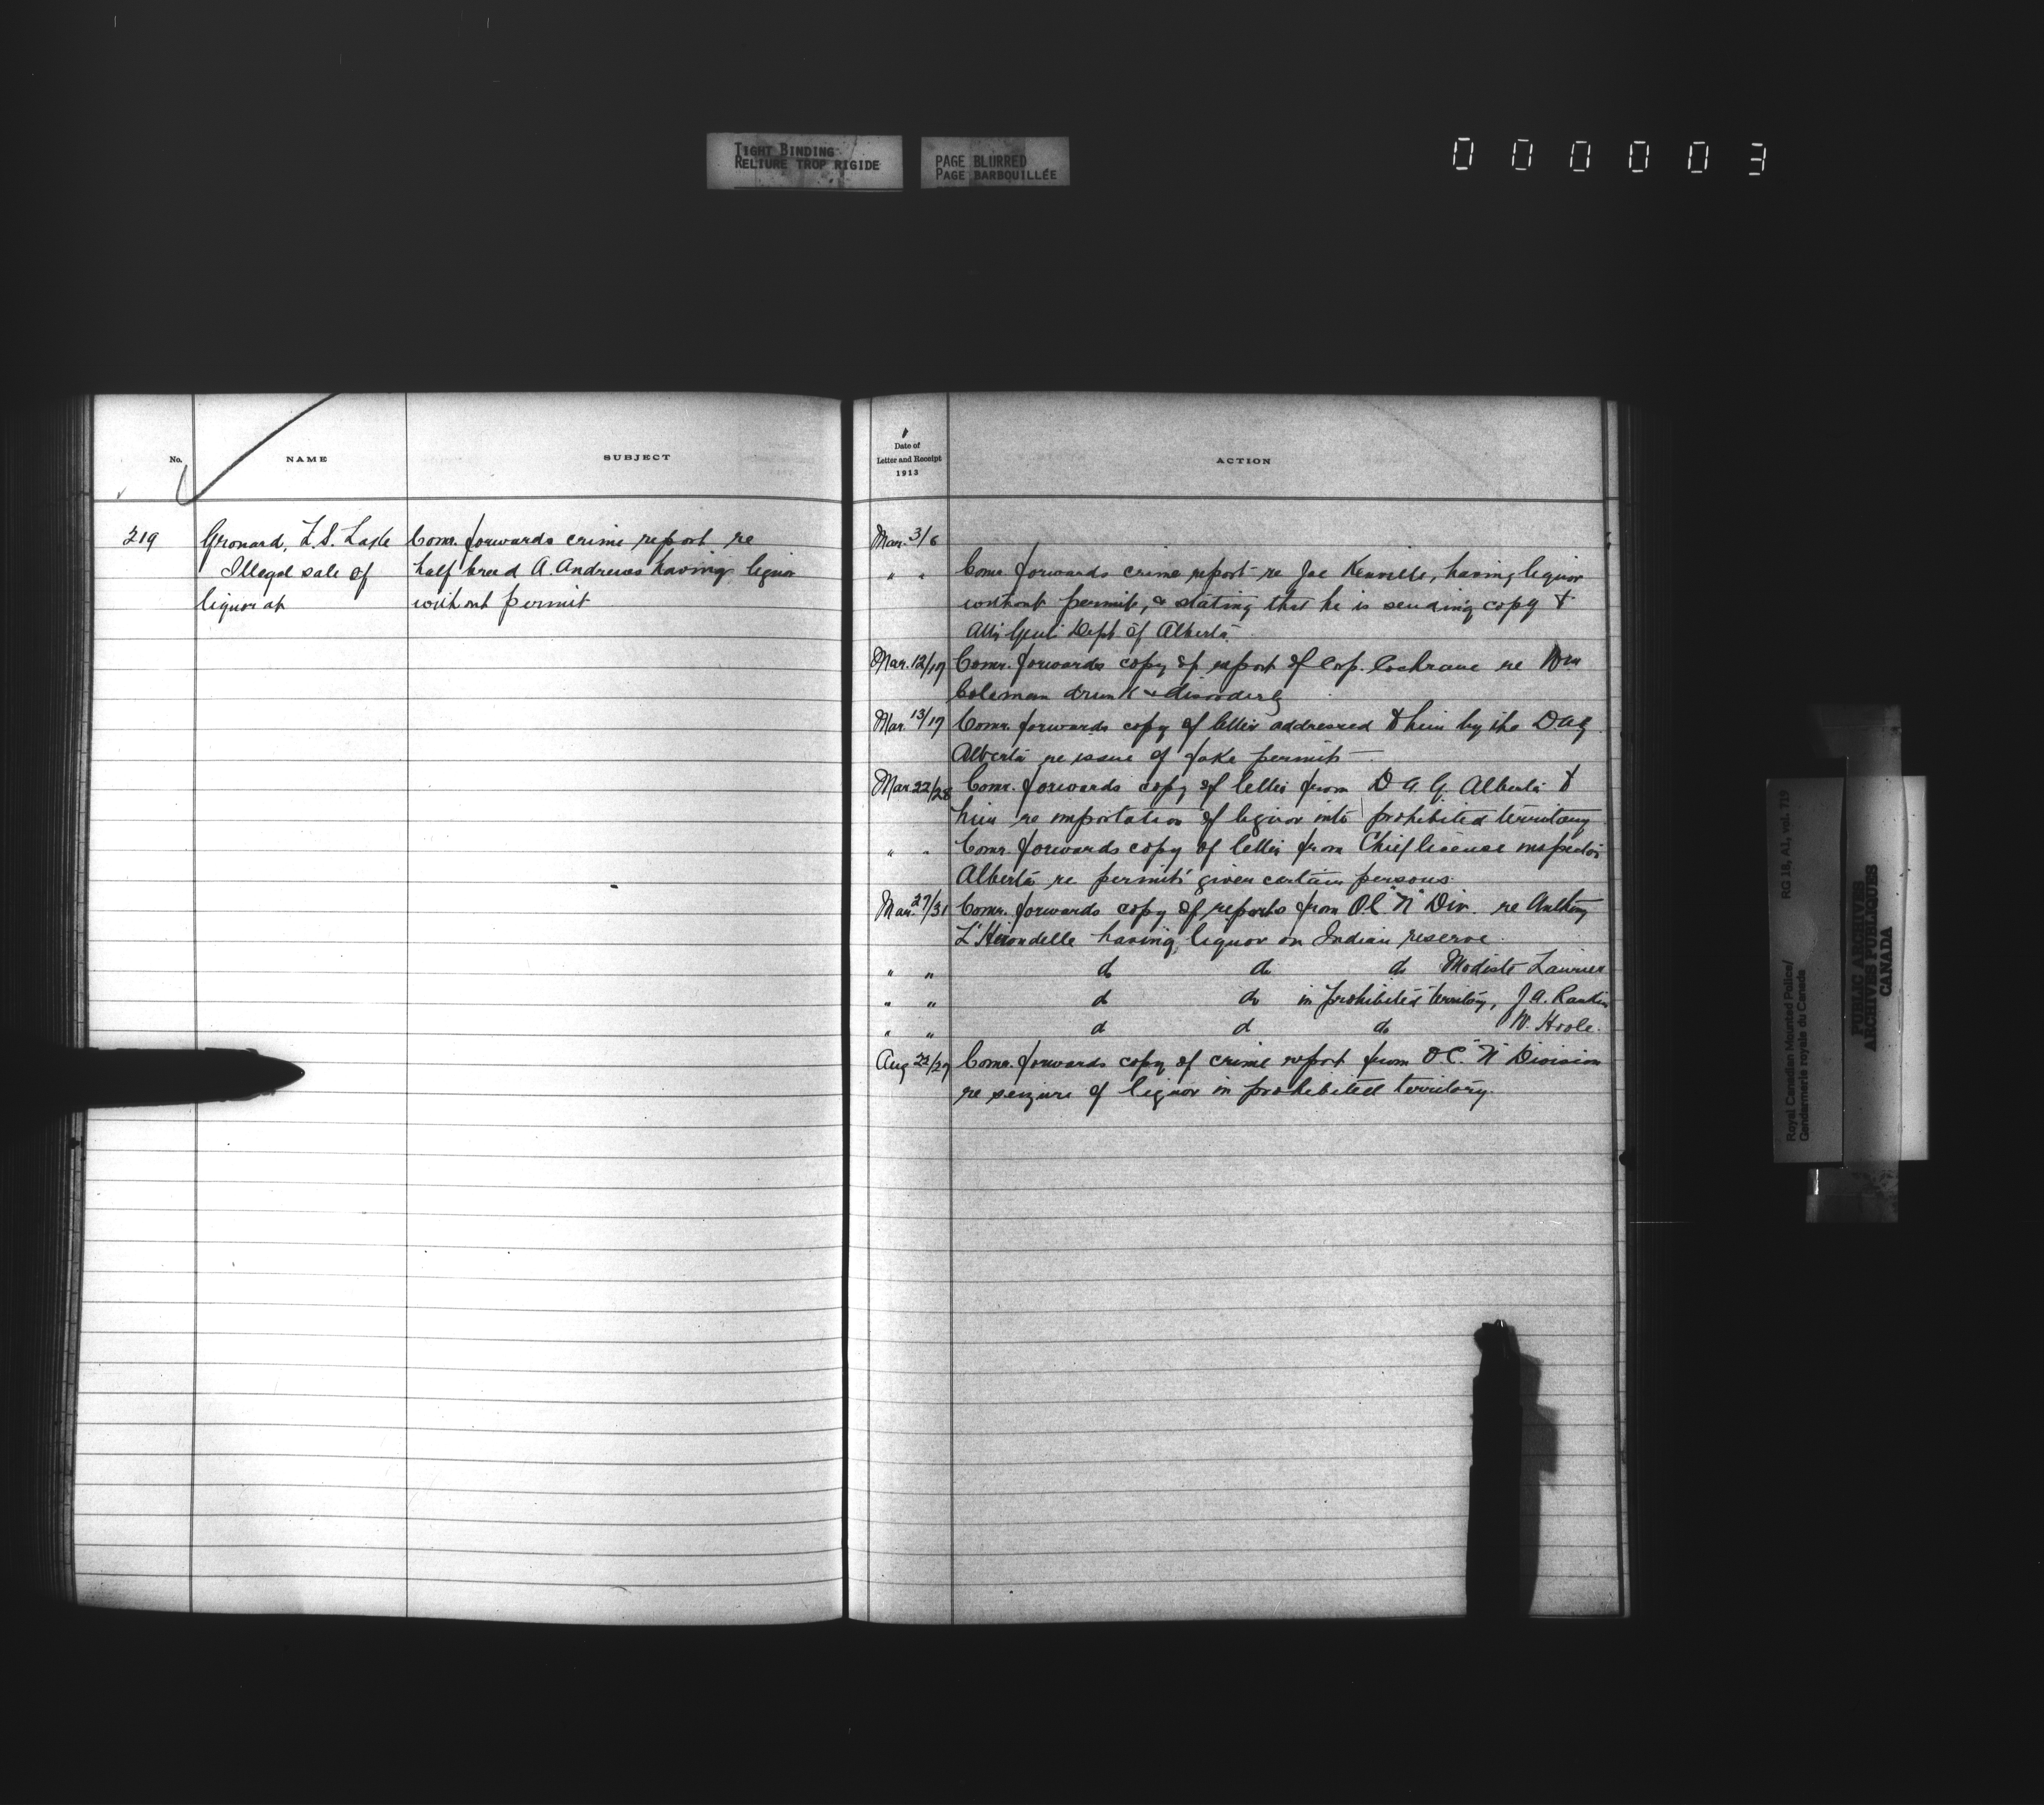 TIGHT BINDING
RELIURE TROP RIGIDE
PAGE BLURRED
PAGE BARBOUILLÉE
000003
No.
NAME
SUBJECT
219
Grouard, L.S. Lake
Illegal sale of
liquor at
Comr. forwards crime report re
half breed A. Andrews having liquor
without permit
Date of
Letter and Receipt
1913
ACTION
Mar. 3/6
" " Comr. forwards crime report re Joe Kenville, having liquor
without permit, & stating that he is sending copy to
Att'y Genl Dept of Alberta.
Mar. 12/17 Comr. forwards copy of report of Corp. Cochrane re Wm
Coleman drunk & disorderly
Mar. 13/17 Comr. forwards copy of letter addressed to him by the DAG
Alberta re issue of fake permits
Mar 22/28 Comr. forwards copy of letter from D A G. Alberta to
him re importation of liquor into prohibited territory
" " Comr. forwards copy of letter from Chief license inspector
Alberta re permits given certain persons.
Mar. 27/31 Comr. forwards copy of reports from OC "N" Div. re Anthony
L'Hirondelle having liquor on Indian reserve.
" " do do do Modiste Laurier
" " do do in prohibited territory, J A. Rankin
" " do do do W. Hoole.
Aug 22/27 Comr. forwards copy of crime report from O.C. "N" Division
re seizure of liquor in prohibited territory.
Royal Canadian Mounted Police/
Gendarmerie royale du Canada
RG 18, A1, vol. 719
PUBLIC ARCHIVES
ARCHIVES PUBLIQUES
CANADA